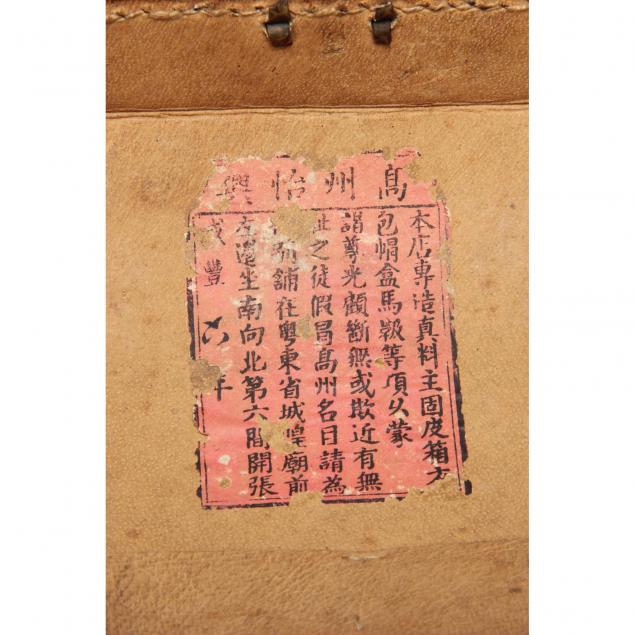 高州怡興
本店專造真料主固皮箱方
包帽盒馬鞍等項久蒙
謁尊光顧斷無或欺近有無
耻之徒假冒高州名目請為
舖在粤東省城隍廟前
左邊坐南向北第六間開張
咸豐六年